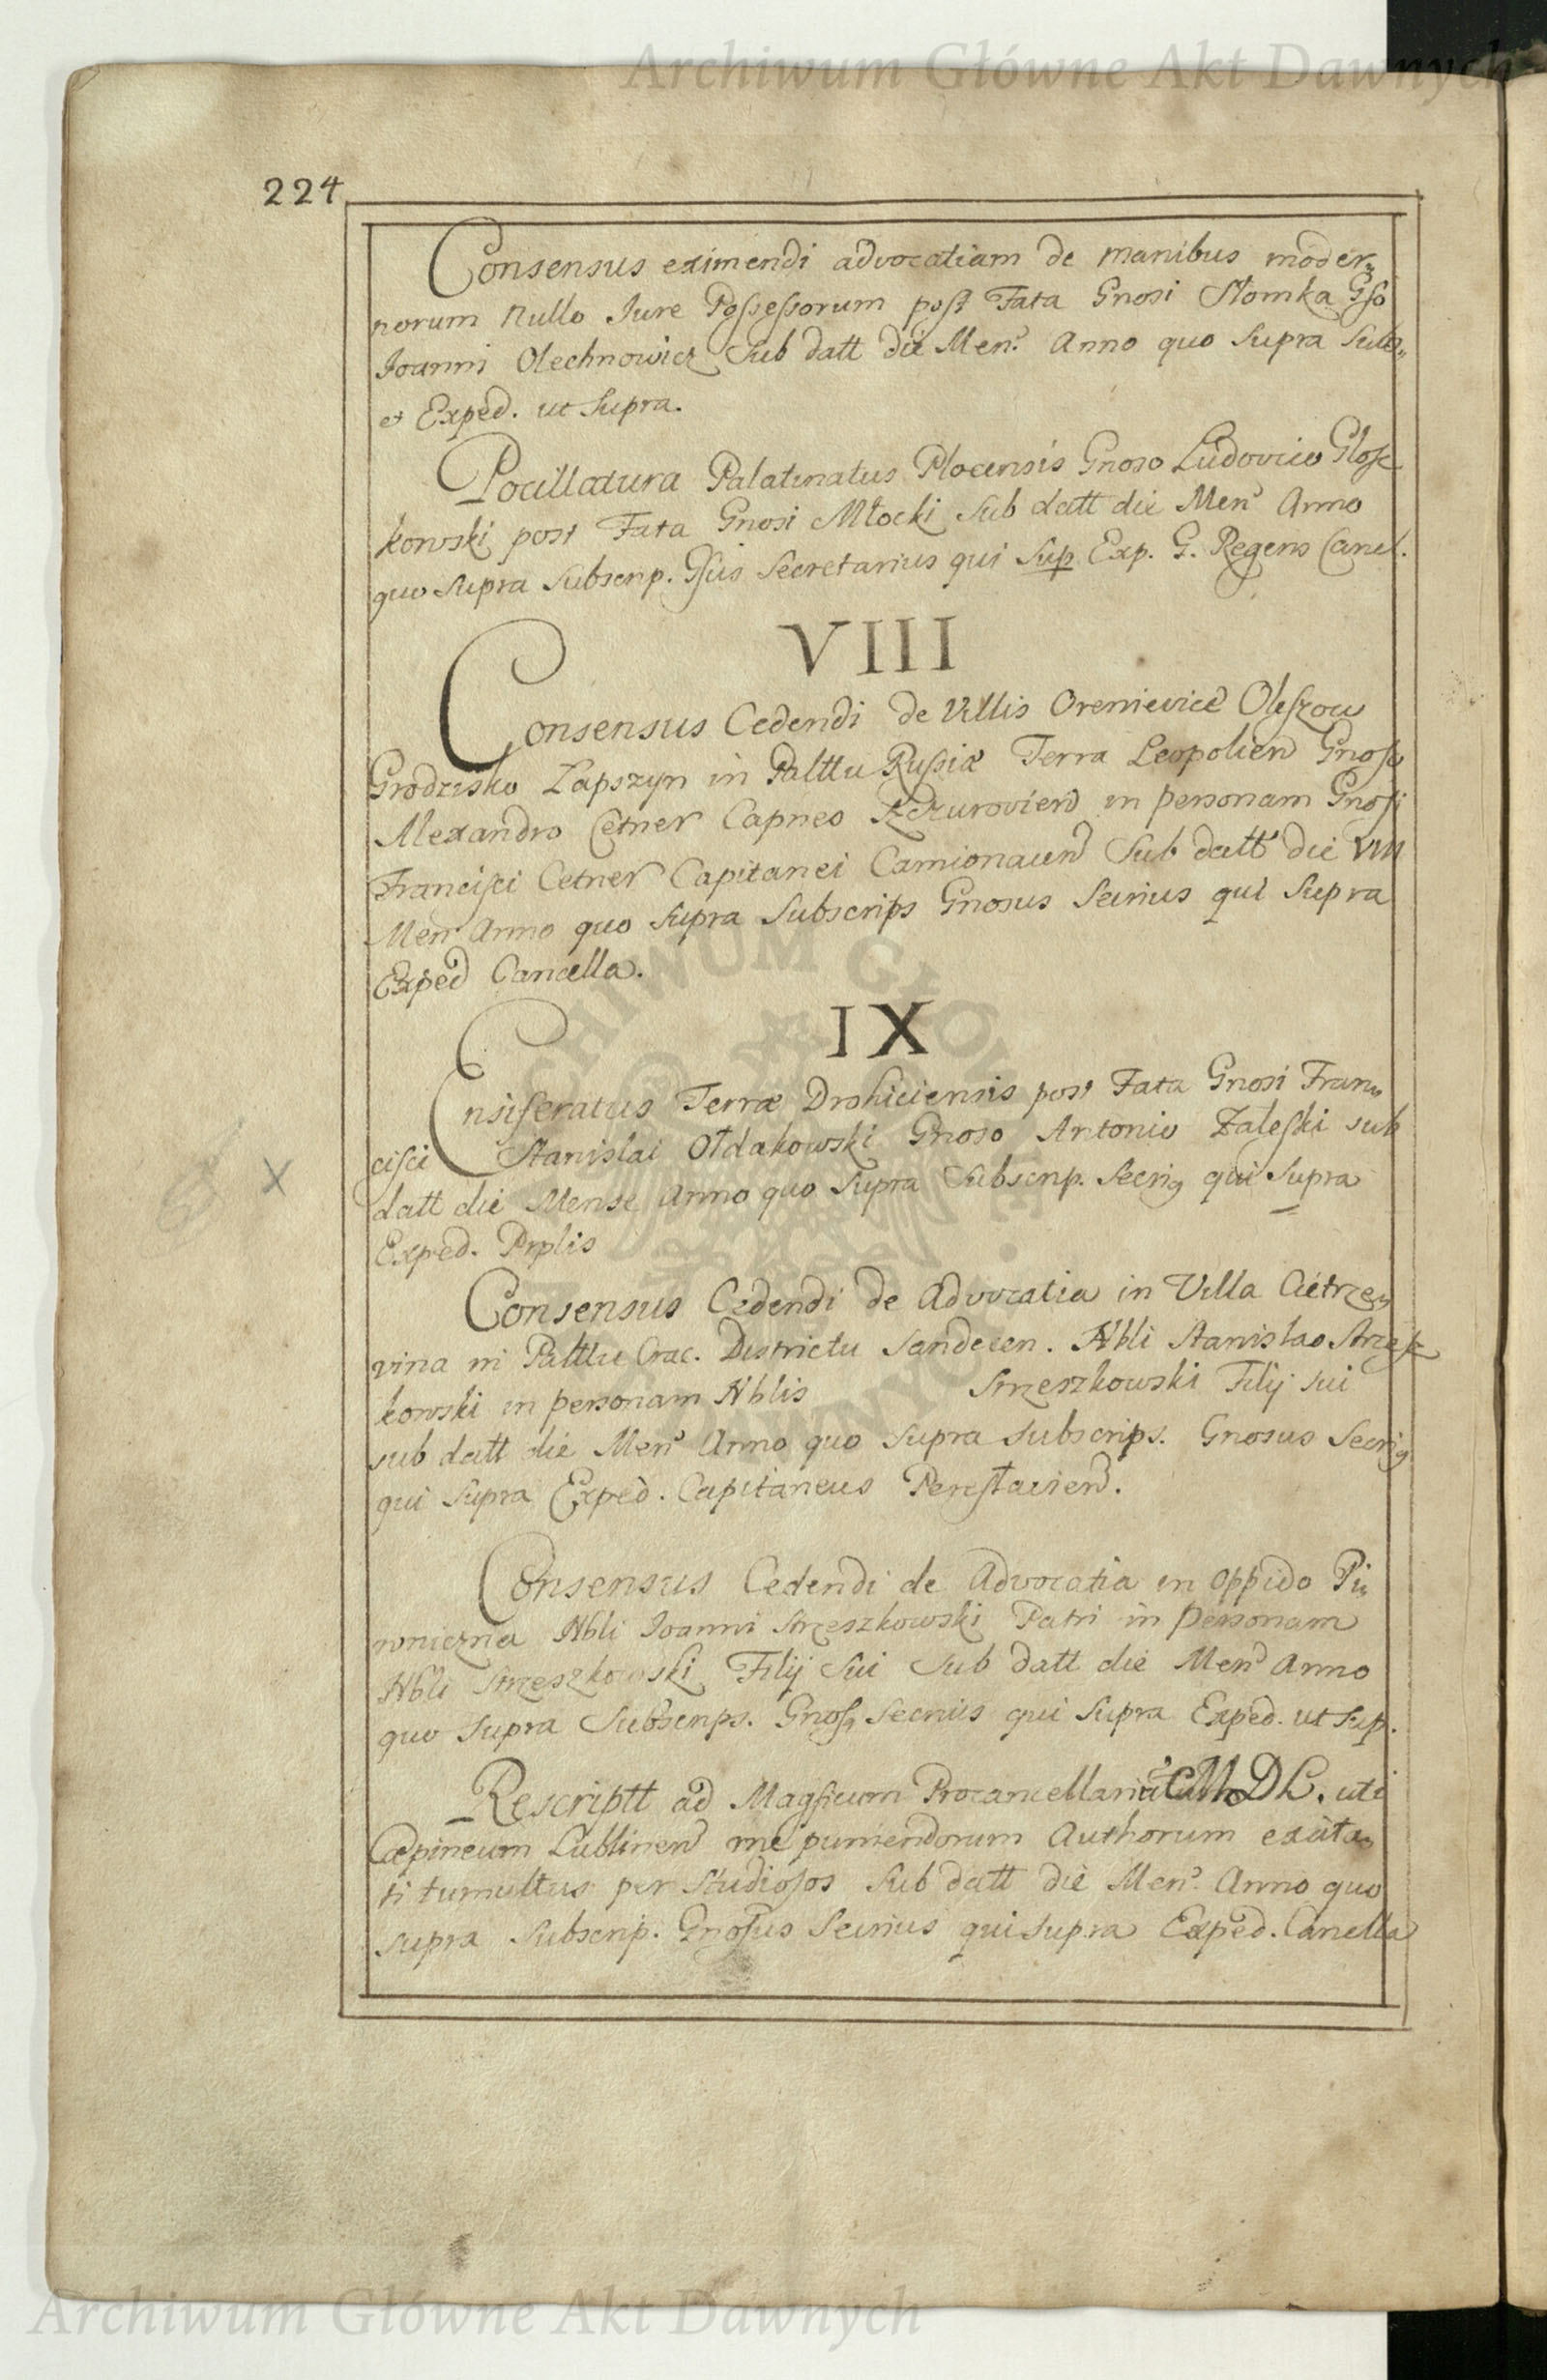 Archiwum Główne Akt Dawnych
224
Consensus eximendi advocatiam de manibus moder„
norum nullo Jure Possessorum post Fata Gnosi Słomka Gso
Joanni Olechnowicz Sub datt die Men. Anno quo Supra Subs„
et Exped. ut Supra.
Pocillatura Palatinatus Plocensis Gnoso Ludovico Glosz
kowski post Fata Gnosi Młocki Sub datt die Men Anno
quo Supra Subscrip. Gsus Secretarius qui Sup Exp. G. Regens Canel.
VIII
Consensus Cedendi de Villis Orenievice Oleszow
Grodzisko Łapszyn in Palttu Russiæ Terra Leopolien Gnoso
Alexandro Cetner Capneo Szczurovien in personam Gnosi
Francisci Cetner Capitanei Camionacen Sub datt die VIII
Men Anno quo Supra Subscrips Gnosus Secrius qui Supra
Exped Cancella.
IX
Ensiferatus Terræ Drohiciensis post Fata Gnosi Fran„
cisci Stanislai Ołdakowski Gnoso Antonio Zaleski sub
datt die Mense Anno quo Supra Subscrip. Secrig qui Supra
Exped. Prplis
X
Consensus Cedendi de Advocatia in Villa Cietrze„
vina in Palttu Crac. Districtu Sandecen. Nbli Stanislao Strzesz
kowski in personam Nblis Strzeszkowski Filij sui
sub datt die Men Anno quo Supra subscrips. Gnosus Secrig
qui Supra Exped. Capitaneus
Consensus Cedendi de Advocatia in oppido Pi„
wniczna Nbli Joanni Strzeszkowski Patri in Personam
Nbli Strzeszkowski Filij Sui Sub datt die Men Anno
quo Supra Subscrips. Gnosg Secrius qui Supra Exped. ut Sup.
Rescriptt ad Magficum Procancellariu M D L. uti
Capineum Lublinen puniendorum Authorum exita„
ti tumultus per Studiosos Sub datt die Men. Anno quo
supra Subscrip. Gnosus Secrius qui supra Exped. Canella
ARCHIWUM GŁÓWNE AKT DAWNYCH
Archiwum Główne Akt Dawnych